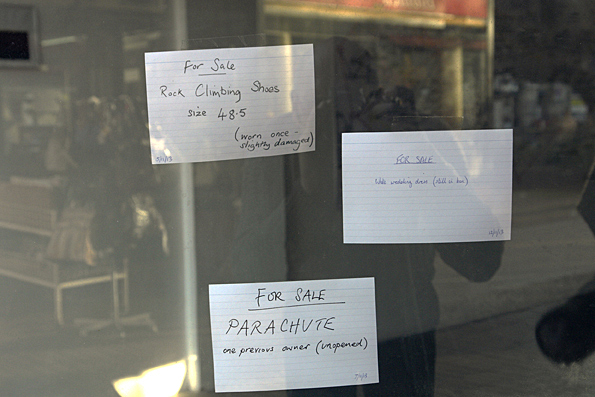 For Sale
Rock Climbing Shoes
size 48.5
(worn once -
slightly damaged)
FOR SALE
wedding dress (still in box)
FOR SALE
PARACHUTE
one previous owner (unopened)